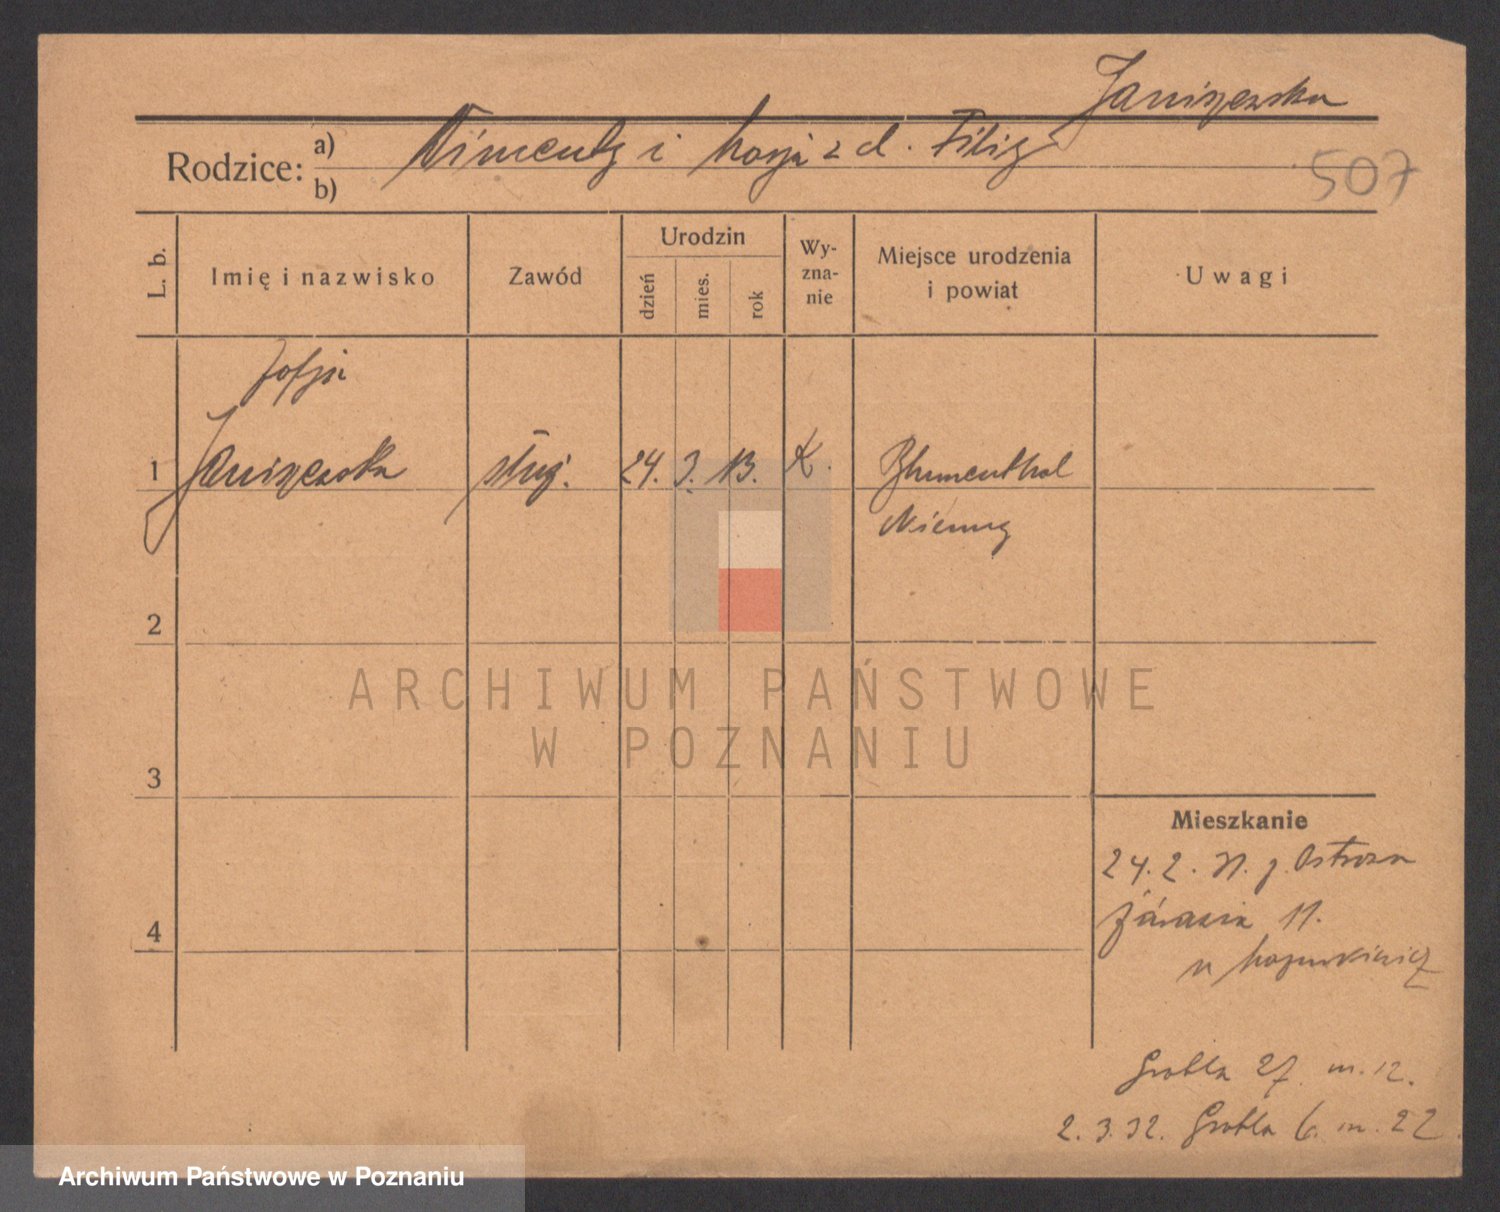 Janiszewska
Rodzice: a) Wincenty i Marja z d. Filip
b)
507
L. b.
Imię i nazwisko
Zawód
Urodzin
dzień
mies.
rok
Wy-
zna-
nie
Miejsce urodzenia
i powiat
Uwagi
Zofja
1 Janiszewska służ. 24. 3. 13. K. Blumenthal
Niemcy
2
3
4
Mieszkanie
24. 2. 31. z Ostrowa
Żórawia 11.
u
Grobla 27 m. 12.
2. 3. 32. Grobla 6. m. 22
ARCHIWUM PAŃSTWOWE
W POZNANIU
Archiwum Państwowe w Poznaniu